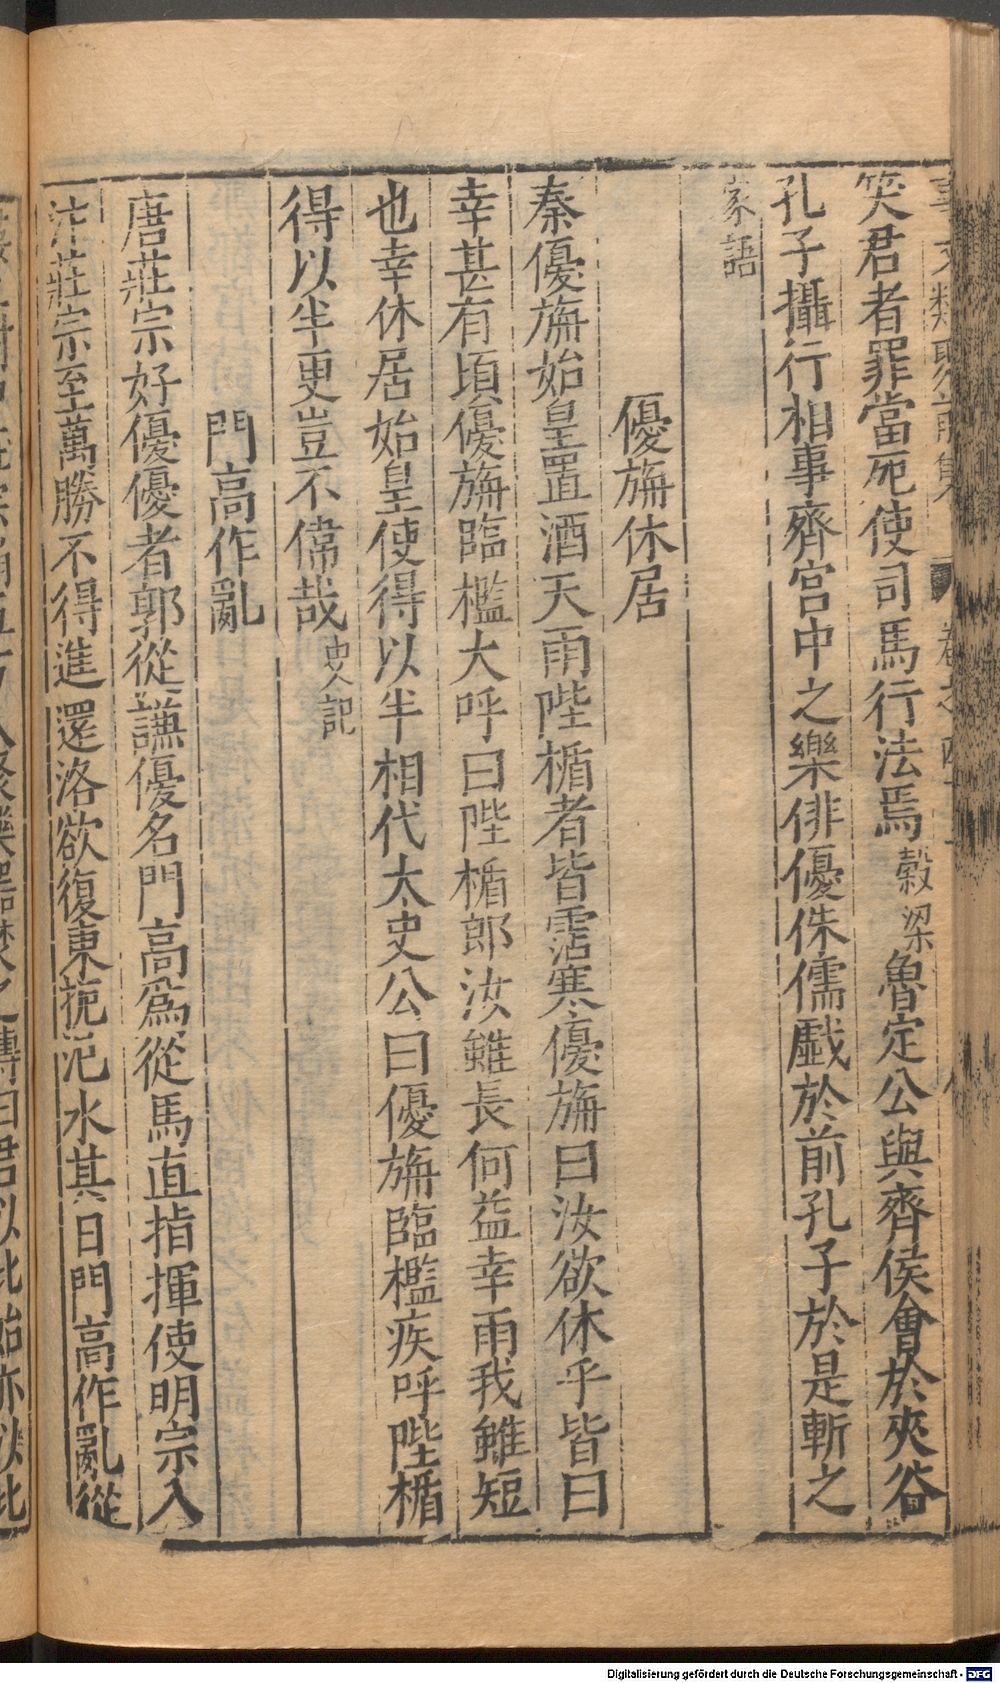 事文類聚前集 卷之四十
笑君者罪當死使司馬行法焉穀梁魯定公與齊侯會於夾谷
孔子攝行相事齊宮中之樂俳優侏儒戱於前孔子於是斬之
家語
優旃休居
秦優旃始皇置酒天雨陛楯者皆霑寒優旃曰汝欲休乎皆曰
幸甚有頃優旃臨檻大呼曰陛楯郎汝雖長何益幸雨我雖短
也幸休居始皇使得以半相代太史公曰優旃臨檻疾呼陛楯
得以半更豈不偉哉史記
門高作亂
唐莊宗好優優者郭從謙優名門高爲從馬直指揮使明宗入
汴莊宗至萬勝不得進還洛欲復東扼汜水其日門高作亂從
樂器焚之傳曰君以此始亦以此
Digitalisierung gefördert durch die Deutsche Forschungsgemeinschaft - DFG